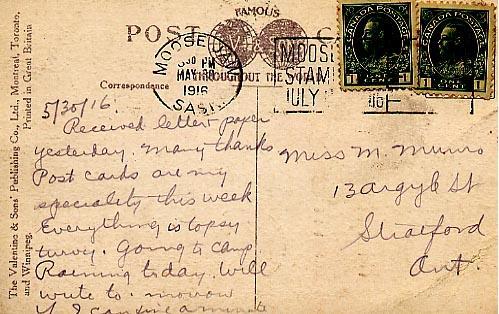 FAMOUS
POST C
THROUGHOUT THE
MOOSE JAW
PM
MAY 30
1916
SASK
MOOSE
STAM
JULY
CANADA POSTAGE
1 CENT 1
CANADA POSTAGE
1 CENT 1
Correspondence
The Valentine & Sons' Publishing Co., Ltd., Montreal, Toronto,
and Winnipeg. Printed in Great Britain
5/30/16.
Received letter paper
yesterday. Many thanks
Post cards are my
speciality this week
Everything is topsy
turvy. Going to camp
Raining today. Will
write to-morrow
if I can find a minute
Miss M. Munro
13 Argyle St
Stratford
Ont.